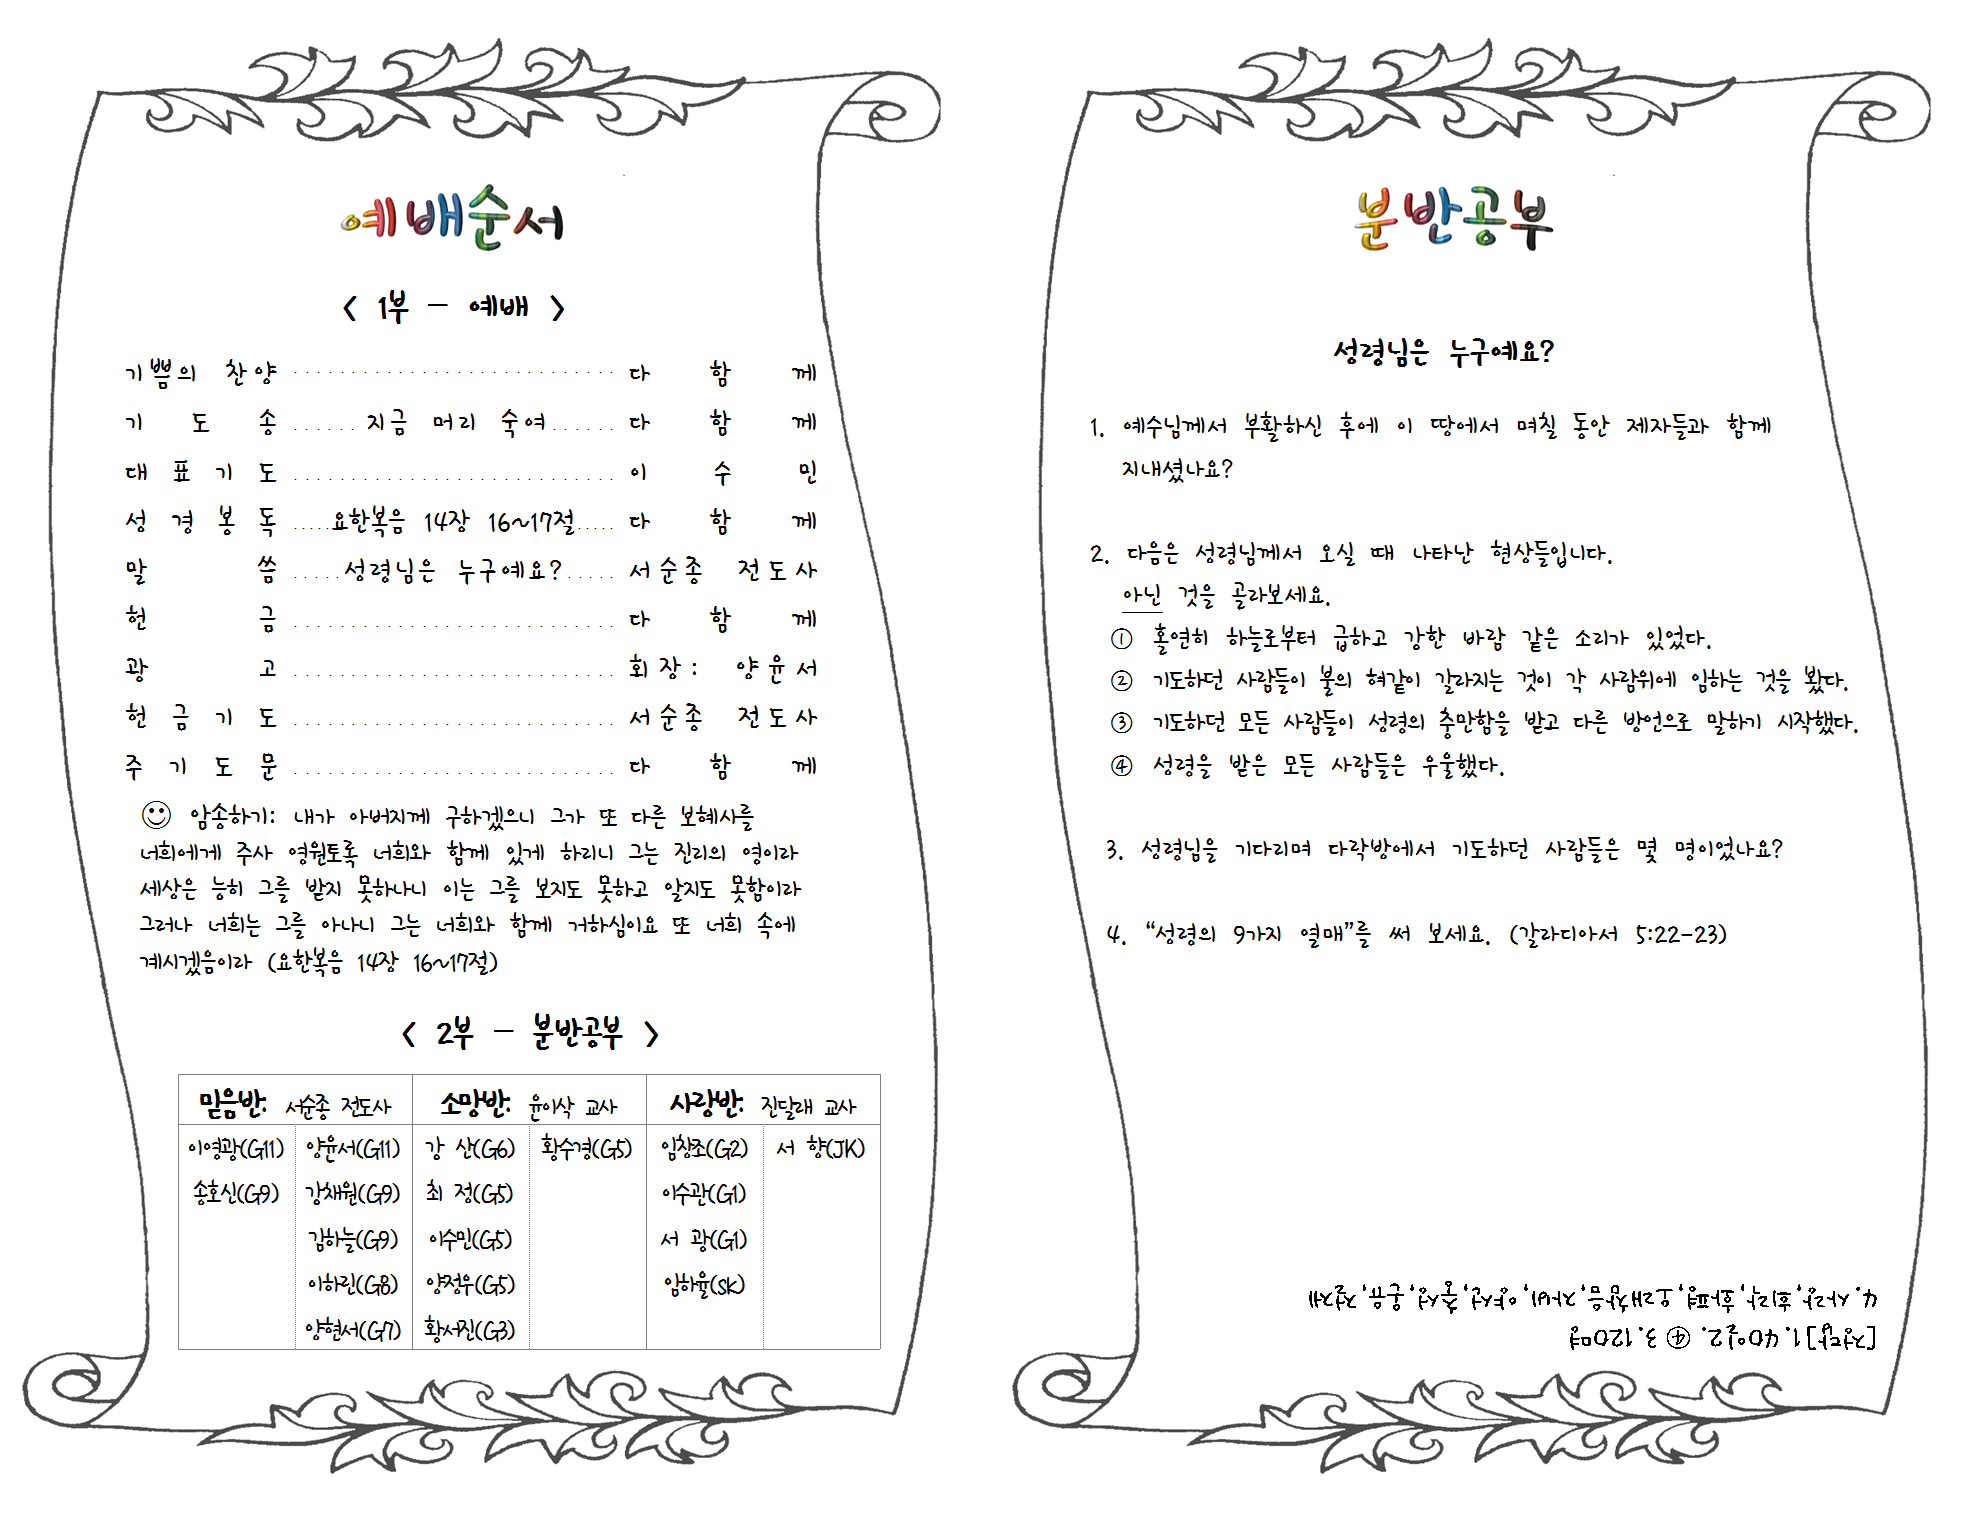 예배순서
< 1부 - 예배 >
기쁨의 찬양 ............................ 다 함 께
기 도 송 ...... 지금 머리 숙여 ...... 다 함 께
대 표 기 도 ............................ 이 수 민
성 경 봉 독 ..... 요한복음 14장 16~17절 ..... 다 함 께
말 씀 ..... 성령님은 누구예요? ..... 서순종 전도사
헌 금 ............................ 다 함 께
광 고 ............................ 회장: 양윤서
헌 금 기 도 ............................ 서순종 전도사
주 기 도 문 ............................ 다 함 께
☺ 암송하기: 내가 아버지께 구하겠으니 그가 또 다른 보혜사를
너희에게 주사 영원토록 너희와 함께 있게 하리니 그는 진리의 영이라
세상은 능히 그를 받지 못하나니 이는 그를 보지도 못하고 알지도 못함이라
그러나 너희는 그를 아나니 그는 너희와 함께 거하심이요 또 너희 속에
계시겠음이라 (요한복음 14장 16~17절)
< 2부 - 분반공부 >
믿음반: 서순종 전도사 소망반: 윤이삭 교사 사랑반: 진달래 교사
이영광(G11) 양윤서(G11) 강 산(G6) 황수경(G5) 임창조(G2) 서 향(JK)
송호신(G9) 강채원(G9) 최 정(G5) 이수관(G1)
김하늘(G9) 이수민(G5) 서 광(G1)
이하린(G8) 양정우(G5) 임하율(SK)
양현서(G7) 황서진(G3)
분반공부
성령님은 누구예요?
1. 예수님께서 부활하신 후에 이 땅에서 며칠 동안 제자들과 함께
지내셨나요?
2. 다음은 성령님께서 오실 때 나타난 현상들입니다.
아닌 것을 골라보세요.
① 홀연히 하늘로부터 급하고 강한 바람 같은 소리가 있었다.
② 기도하던 사람들이 불의 혀같이 갈라지는 것이 각 사람위에 임하는 것을 봤다.
③ 기도하던 모든 사람들이 성령의 충만함을 받고 다른 방언으로 말하기 시작했다.
④ 성령을 받은 모든 사람들은 우울했다.
3. 성령님을 기다리며 다락방에서 기도하던 사람들은 몇 명이었나요?
4. “성령의 9가지 열매”를 써 보세요. (갈라디아서 5:22-23)
[정답] 1. 40일 2. ④ 3. 120명
4. 사랑, 희락, 화평, 오래참음, 자비, 양선, 충성, 온유, 절제